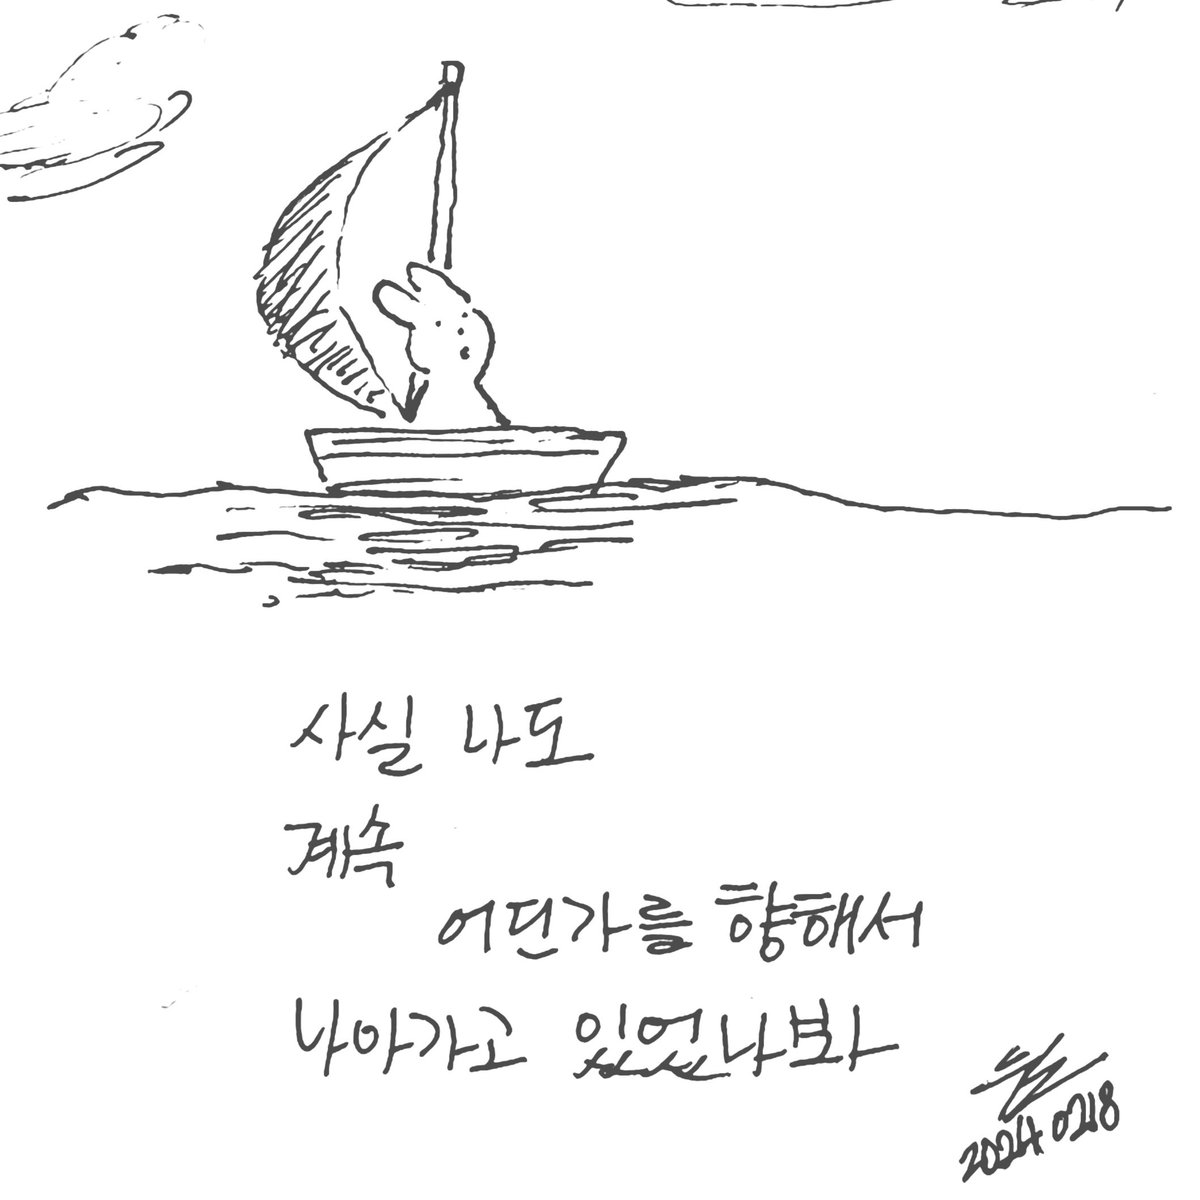 사실 나도
계속
어딘가를 향해서
나아가고 있었나봐
20240218